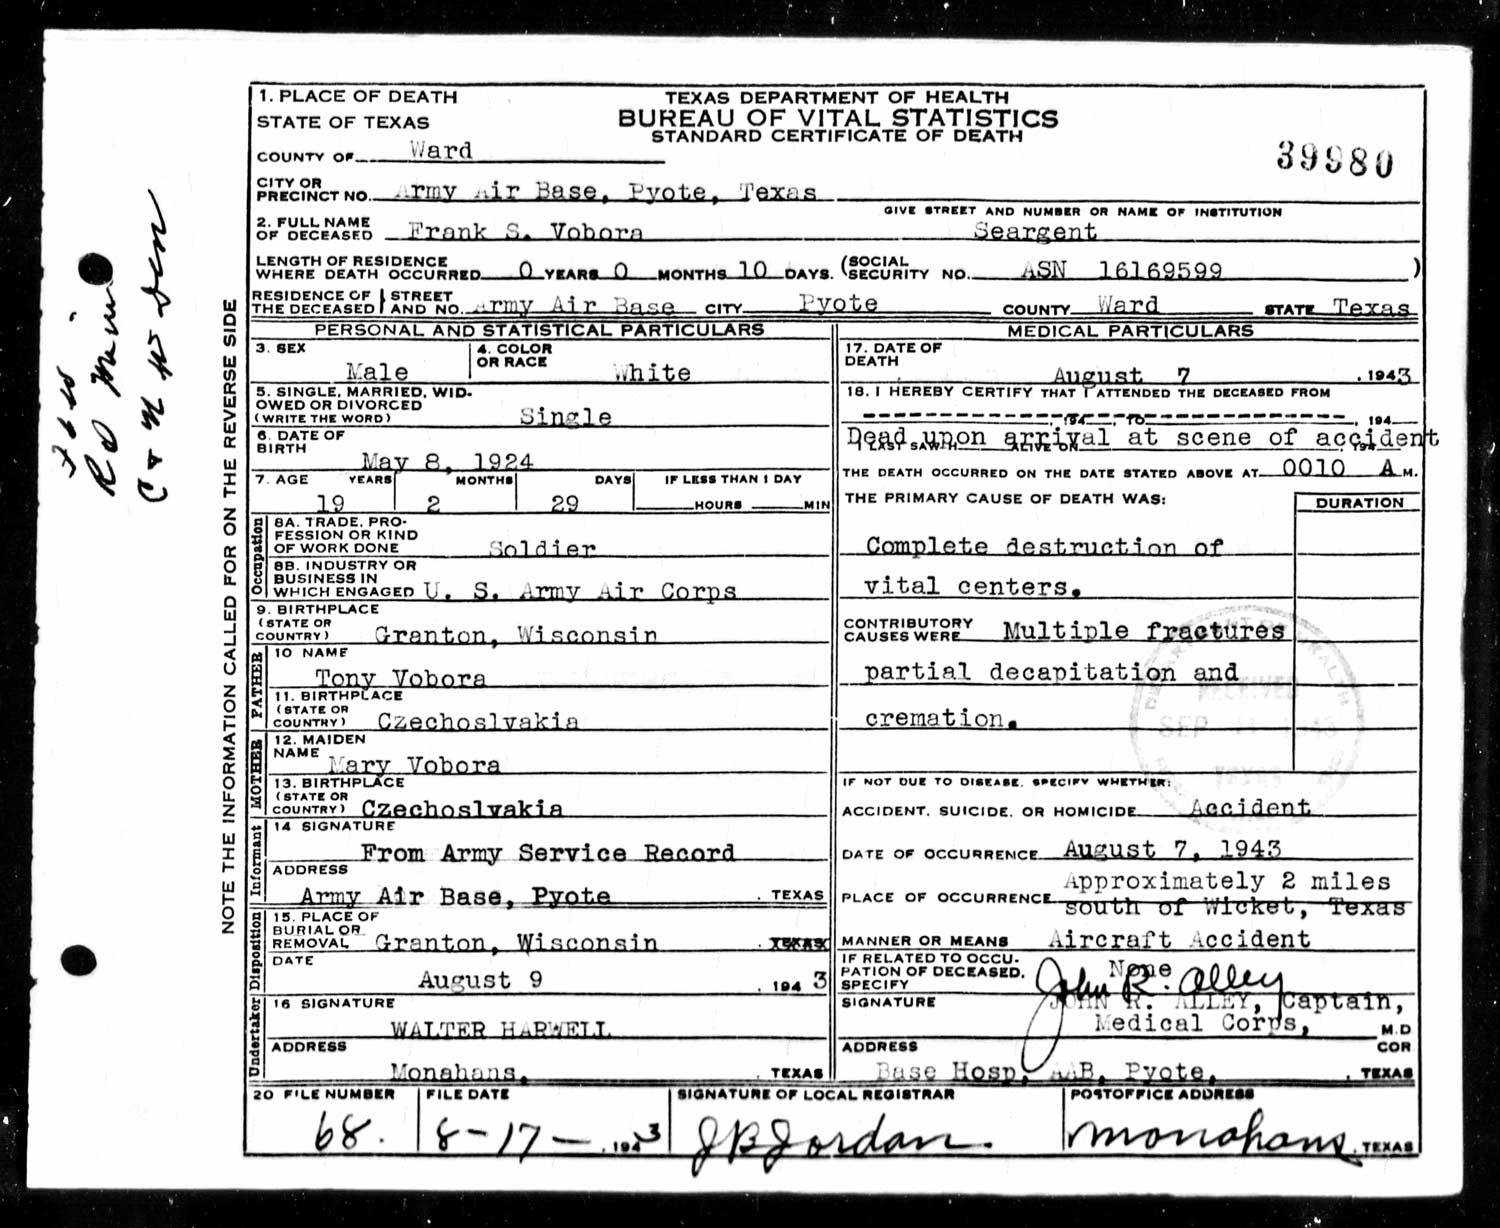 1. PLACE OF DEATH
STATE OF TEXAS
COUNTY OF Ward
TEXAS DEPARTMENT OF HEALTH
BUREAU OF VITAL STATISTICS
STANDARD CERTIFICATE OF DEATH
39980
CITY OR PRECINCT NO. Army Air Base, Pyote, Texas
GIVE STREET AND NUMBER OR NAME OF INSTITUTION
2. FULL NAME OF DECEASED Frank S. Vobora Seargent
LENGTH OF RESIDENCE WHERE DEATH OCCURRED 0 YEARS 0 MONTHS 10 DAYS. (SOCIAL SECURITY NO. ASN 16169599)
RESIDENCE OF THE DECEASED STREET AND NO. Army Air Base CITY Pyote COUNTY Ward STATE Texas
PERSONAL AND STATISTICAL PARTICULARS
3. SEX Male
4. COLOR OR RACE White
5. SINGLE, MARRIED, WIDOWED OR DIVORCED (WRITE THE WORD) Single
6. DATE OF BIRTH May 8, 1924
7. AGE YEARS MONTHS DAYS IF LESS THAN 1 DAY
19 2 29 HOURS MIN
Occupation
8A. TRADE, PROFESSION OR KIND OF WORK DONE Soldier
8B. INDUSTRY OR BUSINESS IN WHICH ENGAGED U. S. Army Air Corps
9. BIRTHPLACE (STATE OR COUNTRY) Granton, Wisconsin
FATHER
10 NAME Tony Vobora
11. BIRTHPLACE (STATE OR COUNTRY) Czechoslvakia
MOTHER
12. MAIDEN NAME Mary Vobora
13. BIRTHPLACE (STATE OR COUNTRY) Czechoslvakia
Informant
14 SIGNATURE From Army Service Record
ADDRESS Army Air Base, Pyote, TEXAS
Disposition
15. PLACE OF BURIAL OR REMOVAL Granton, Wisconsin, TEXAS
DATE August 9, 1943
Undertaker
16 SIGNATURE WALTER HARWELL
ADDRESS Monahans, TEXAS
MEDICAL PARTICULARS
17. DATE OF DEATH August 7, 1943
18. I HEREBY CERTIFY THAT I ATTENDED THE DECEASED FROM
, 194 , TO , 194
Dead upon arrival at scene of accident
I LAST SAW H ALIVE ON , 194
THE DEATH OCCURRED ON THE DATE STATED ABOVE AT 0010 A M.
THE PRIMARY CAUSE OF DEATH WAS: DURATION
Complete destruction of
vital centers.
CONTRIBUTORY CAUSES WERE Multiple fractures
partial decapitation and
cremation.
RECEIVED
SEP 11 1943
TEXAS
IF NOT DUE TO DISEASE, SPECIFY WHETHER:
ACCIDENT, SUICIDE, OR HOMICIDE Accident
DATE OF OCCURRENCE August 7, 1943
PLACE OF OCCURRENCE Approximately 2 miles
south of Wicket, Texas
MANNER OR MEANS Aircraft Accident
IF RELATED TO OCCUPATION OF DECEASED, SPECIFY None
John R. Alley
SIGNATURE JOHN R. ALLEY, Captain,
Medical Corps, M.D COR
ADDRESS Base Hosp, AAB, Pyote, TEXAS
20 FILE NUMBER 68.
FILE DATE 8-17-, 1943
SIGNATURE OF LOCAL REGISTRAR J B Jordan.
POSTOFFICE ADDRESS Monahans, TEXAS
NOTE THE INFORMATION CALLED FOR ON THE REVERSE SIDE